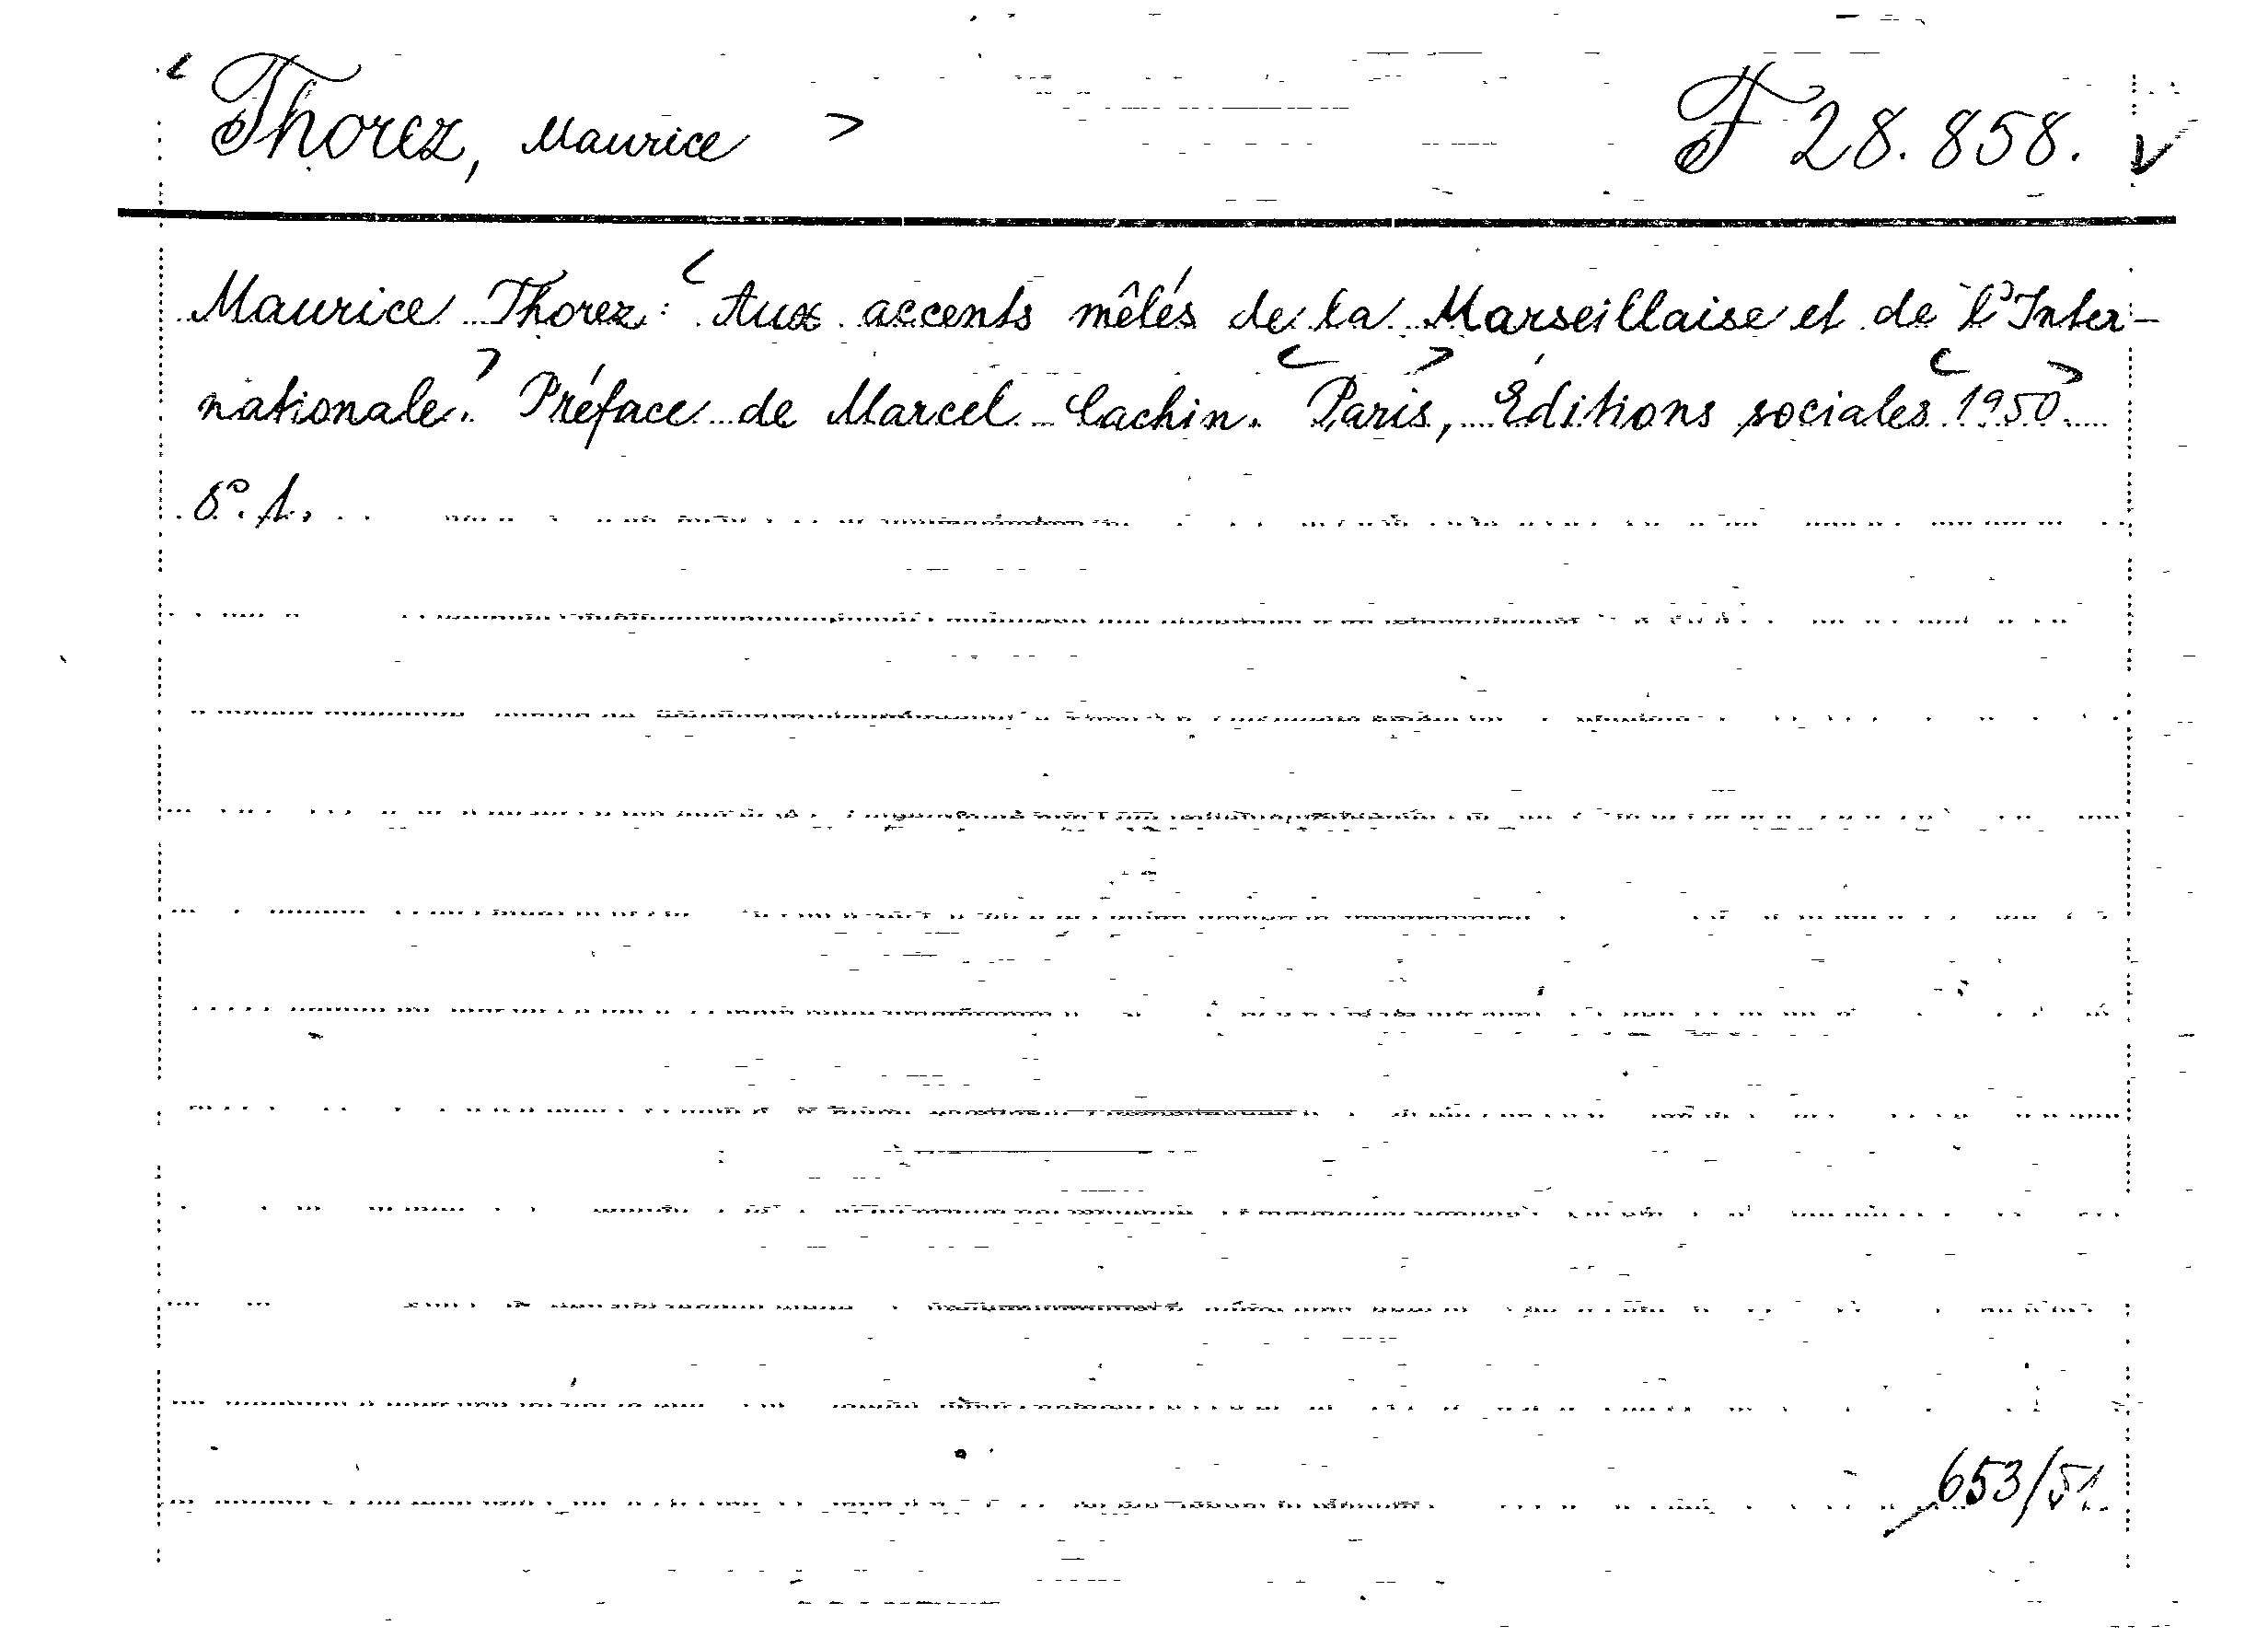 Thorez, Maurice F 28.858.
Maurice Thorez: Aux accents mêlés de la Marseillaise et de l'Inter-
nationale. Préface de Marcel Cachin. Paris, Éditions sociales 1950
8°. 1.
653/51.